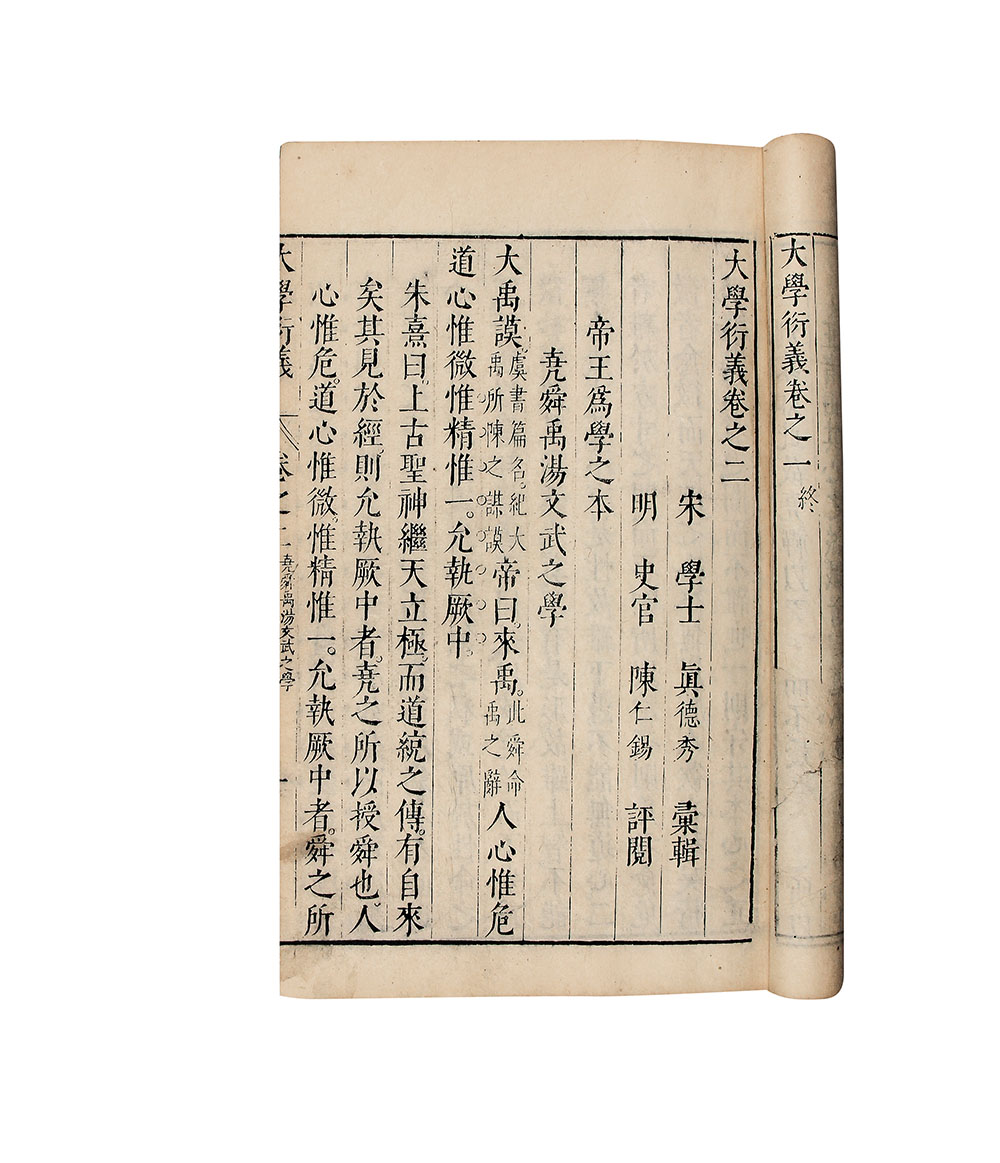 大學衍義卷之一終
大學衍義卷之二
宋 學士 眞德秀 彙輯
明 史官 陳仁錫 評閱
帝王爲學之本
堯舜禹湯文武之學
大禹謨。虞書篇名。紀大禹所陳之謀謨帝曰。來禹。此舜命禹之辭人心惟危
道心惟微惟精惟一。允執厥中。
朱熹曰。上古聖神繼天立極。而道統之傳。有自來
矣其見於經。則允執厥中者。堯之所以授舜也。人
心惟危。道心惟微。惟精惟一。允執厥中者。舜之所
大學衍義 卷之二 堯舜禹湯文武之學 一